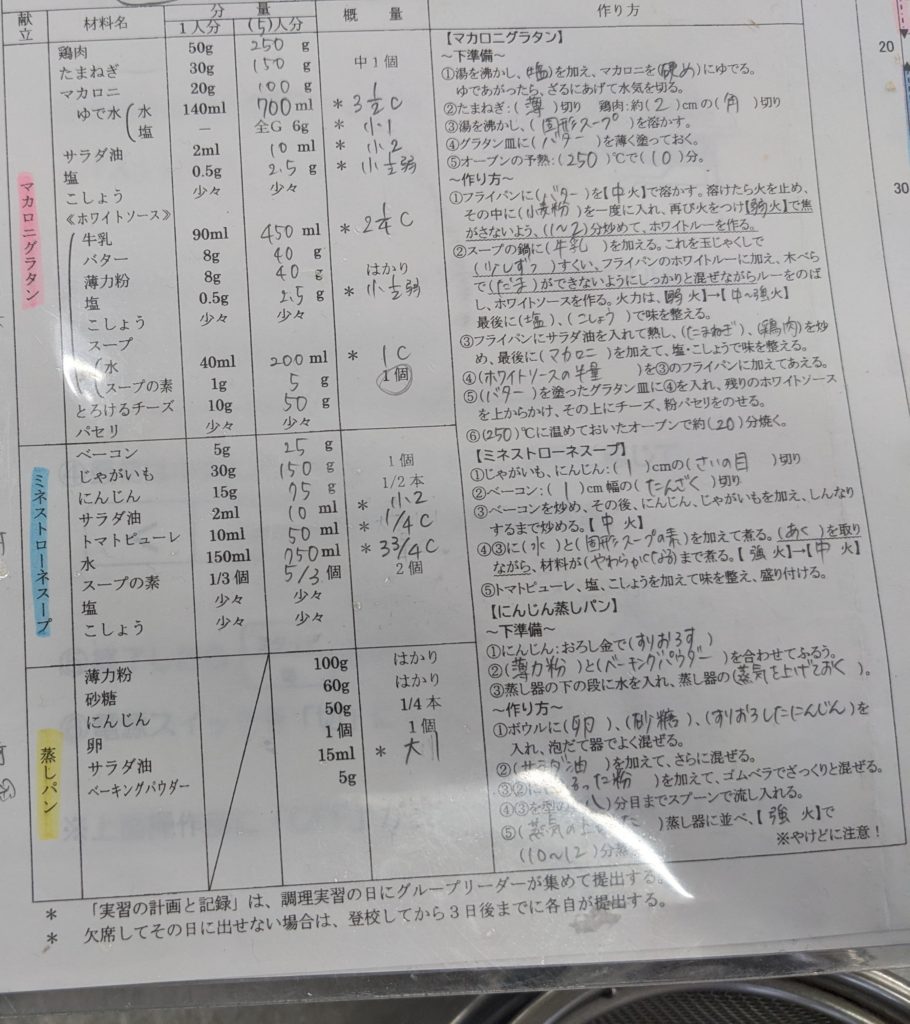 献立 材料名 分量 概量 作り方
1人分 (5)人分
マカロニグラタン
鶏肉 50g 250 g
たまねぎ 30g 150 g 中1個
マカロニ 20g 100 g
ゆで水 水 140ml 700 ml * 3 1/2 C
塩 − 全G 6g * 小1
サラダ油 2ml 10 ml * 小2
塩 0.5g 2.5 g * 小1/2弱
こしょう 少々 少々
《ホワイトソース》
牛乳 90ml 450 ml * 2 1/4 C
バター 8g 40 g
薄力粉 8g 40 g はかり
塩 0.5g 2.5 g * 小1/2弱
こしょう 少々 少々
スープ
水 40ml 200 ml * 1C
スープの素 1g 5 g 1個
とろけるチーズ 10g 50 g
パセリ 少々 少々
ミネストローネスープ
ベーコン 5g 25 g
じゃがいも 30g 150 g 1個
にんじん 15g 75 g 1/2本
サラダ油 2ml 10 ml * 小2
トマトピューレ 10ml 50 ml * 1/4C
水 150ml 750 ml * 3 3/4 C
スープの素 1/3個 5/3 個 2個
塩 少々 少々
こしょう 少々 少々
蒸しパン
薄力粉 100g はかり
砂糖 60g はかり
にんじん 50g 1/4本
卵 1個 1個
サラダ油 15ml * 大1
ベーキングパウダー 5g
【マカロニグラタン】
～下準備～
①湯を沸かし、(塩)を加え、マカロニを(硬め)にゆでる。
ゆであがったら、ざるにあげて水気を切る。
②たまねぎ:(薄)切り 鶏肉:約(2)cmの(角)切り
③湯を沸かし、(固形スープ)を溶かす。
④グラタン皿に(バター)を薄く塗っておく。
⑤オーブンの予熱:(250)℃で(10)分。
～作り方～
①フライパンに(バター)を【中火】で溶かす。溶けたら火を止め、
その中に(小麦粉)を一度に入れ、再び火をつけ【弱火】で焦
がさないよう、(1～2)分炒めて、ホワイトルーを作る。
②スープの鍋に(牛乳)を加える。これを玉じゃくしで
(少しずつ)すくい、フライパンのホワイトルーに加え、木べら
で(だま)ができないようにしっかりと混ぜながらルーをのば
し、ホワイトソースを作る。火力は、【弱火】→【中～強火】
最後に(塩)、(こしょう)で味を整える。
③フライパンにサラダ油を入れて熱し、(たまねぎ)、(鶏肉)を炒
め、最後に(マカロニ)を加えて、塩・こしょうで味を整える。
④(ホワイトソースの半量)を③のフライパンに加えてあえる。
⑤(バター)を塗ったグラタン皿に④を入れ、残りのホワイトソース
を上からかけ、その上にチーズ、粉パセリをのせる。
⑥(250)℃に温めておいたオーブンで約(20)分焼く。
【ミネストローネスープ】
①じゃがいも、にんじん:(1)cmの(さいの目)切り
②ベーコン:(1)cm幅の(たんざく)切り
③ベーコンを炒め、その後、にんじん、じゃがいもを加え、しんなり
するまで炒める。【中火】
④③に(水)と(固形スープの素)を加えて煮る。(あく)を取り
ながら、材料が(やわらかくなる)まで煮る。【強火】→【中火】
⑤トマトピューレ、塩、こしょうを加えて味を整え、盛り付ける。
【にんじん蒸しパン】
～下準備～
①にんじん:おろし金で(すりおろす)
②(薄力粉)と(ベーキングパウダー)を合わせてふるう。
③蒸し器の下の段に水を入れ、蒸し器の(蒸気を上げておく)。
～作り方～
①ボウルに(卵)、(砂糖)、(すりおろしたにんじん)を
入れ、泡だて器でよく混ぜる。
②(サラダ油)を加えて、さらに混ぜる。
③②に った粉)を加えて、ゴムベラでざっくりと混ぜる。
④③を型の 八)分目までスプーンで流し入れる。
⑤(蒸気の上 た)蒸し器に並べ、【強火】で
(10～12)分蒸 ※やけどに注意！
* 「実習の計画と記録」は、調理実習の日にグループリーダーが集めて提出する。
* 欠席してその日に出せない場合は、登校してから3日後までに各自が提出する。
20
30